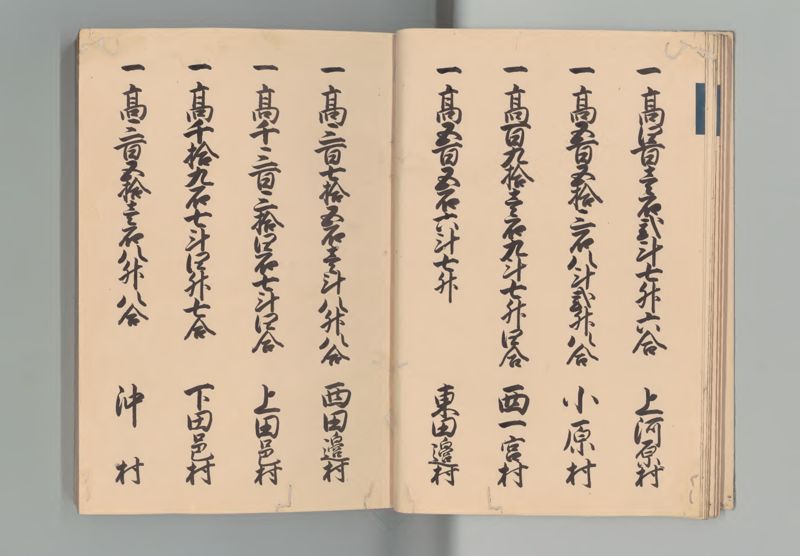 一高四百壱石弐斗七升六合 上河原村
一高五百五拾三石八斗弐升八合 小原村
一高百九拾壱石九斗七升四合 西一宮村
一高五百五石六斗七升 東田邉村
一高三百七拾五石壱斗八升八合 西田邉村
一高千三百三拾四石七斗四合 上田邑村
一高千拾九石七斗四升七合 下田邑村
一高三百五拾壱石八升八合 沖村